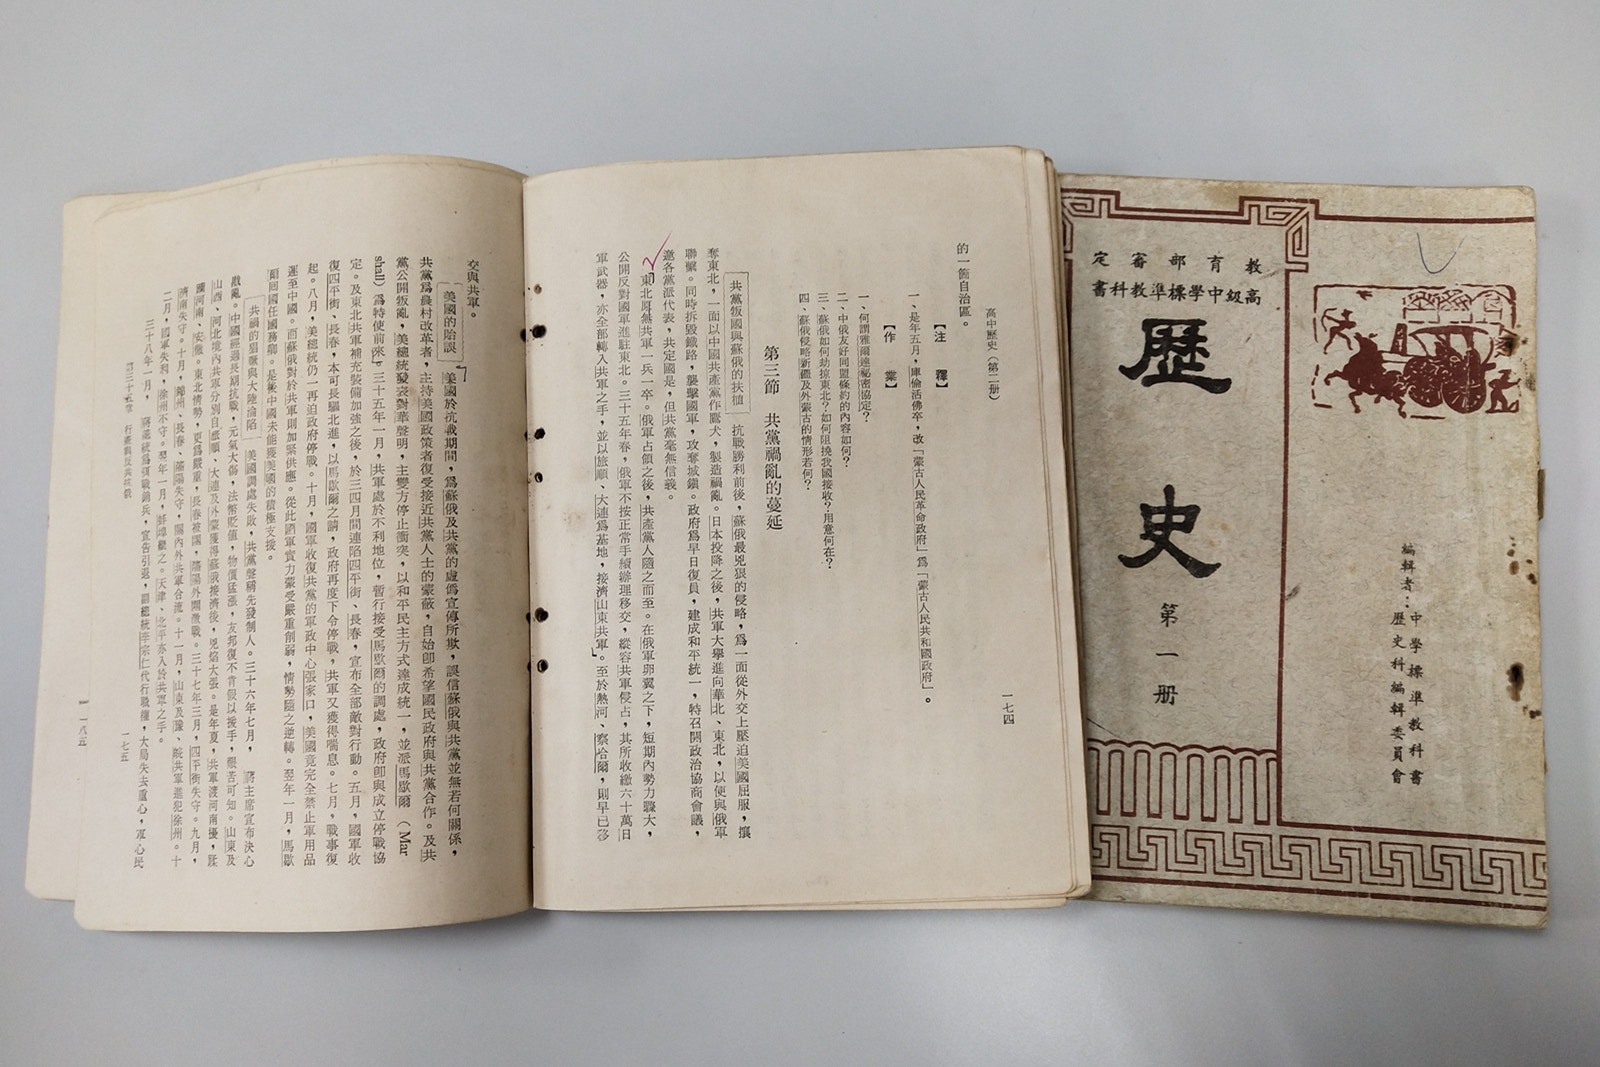 教育部審定
高級中學標準教科書
歷史
第一册
編輯者：中學標準教科書
歷史科編輯委員會
高中歷史（第二册）
一七四
的一箇自治區。
【注釋】
一、是年五月，庫倫活佛卒，改「蒙古人民革命政府」爲「蒙古人民共和國政府」。
【作業】
一、何謂雅爾達祕密協定？
二、中俄友好同盟條約的內容如何？
三、蘇俄如何劫掠東北？如何阻撓我國接收？用意何在？
四、蘇俄侵略新疆及外蒙古的情形若何？
第三節　共黨禍亂的蔓延
共黨叛國與蘇俄的扶植　抗戰勝利前後，蘇俄最兇狠的侵略，爲一面從外交上壓迫美國屈服，攘
奪東北，一面以中國共產黨作鷹犬，製造禍亂。日本投降之後，共軍大舉進向華北、東北，以便與俄軍
聯繫。同時拆毀鐵路，襲擊國軍，攻奪城鎭。政府爲早日復員，建成和平統一，特召開政治協商會議，
邀各黨派代表，共定國是，但共黨毫無信義。
東北原無共軍一兵一卒。俄軍占領之後，共產黨人隨之而至。在俄軍卵翼之下，短期內勢力驟大，
公開反對國軍進駐東北。三十五年春，俄軍不按正常手續辦理移交，縱容共軍侵占，其所收繳六十萬日
軍武器，亦全部轉入共軍之手，並以旅順、大連爲基地，接濟山東共軍。至於熱河、察哈爾，則早已移
交與共軍。
美國的貽誤　美國於抗戰期間，爲蘇俄及共黨的虛僞宣傳所欺，誤信蘇俄與共黨並無若何關係，
共黨爲農村改革者，主持美國政策者復受接近共黨人士的蒙蔽，自始即希望國民政府與共黨合作。及共
黨公開叛亂，美總統發表對華聲明，主雙方停止衝突，以和平民主方式達成統一，並派馬歇爾（Mar
shall）爲特使前來。三十五年一月，共軍處於不利地位，暫行接受馬歇爾的調處，政府即與成立停戰協
定。及東北共軍補充裝備加強之後，於三四月間連陷四平街、長春，宣布全部敵對行動。五月，國軍收
復四平街、長春，本可長驅北進，以馬歇爾之請，政府再度下令停戰，共軍又獲得喘息。七月，戰事復
起。八月，美總統仍一再迫政府停戰。十月，國軍收復共黨的軍政中心張家口，美國竟完全禁止軍用品
運至中國。而蘇俄對於共軍則加緊供應。從此國軍實力蒙受嚴重削弱，情勢隨之逆轉。翌年一月，馬歇
爾回國任國務卿。是後中國未能獲美國的積極支援。
共禍的猖獗與大陸淪陷　美國調處失敗，共黨聲稱先發制人。三十六年七月，　蔣主席宣布決心
戡亂。中國經過長期抗戰，元氣大傷，法幣貶值，物價猛漲，友邦復不肯假以援手，艱苦可知。山東及
山西、河北境內共軍分別自旅順、大連及外蒙獲得蘇俄接濟後，兇焰大張。是年夏，共軍渡河南擾，蹂
躪河南、安徽。東北情勢，更爲嚴重，長春被圍，瀋陽外圍激戰。三十七年三月，四平街失守。九月，
濟南失守。十月，錦州、長春、瀋陽失守，關內外共軍合流。十一月，山東及豫、皖共軍進犯徐州。十
二月，國軍失利，徐州不守。翌年一月，蚌埠繼之。天津、北平亦入於共軍之手。
三十八年一月，　蔣總統爲弭戰銷兵，宣告引退，副總統李宗仁代行職權，大局失去重心，軍心民
第三十五章　行憲與反共抗俄
一七五
一八五